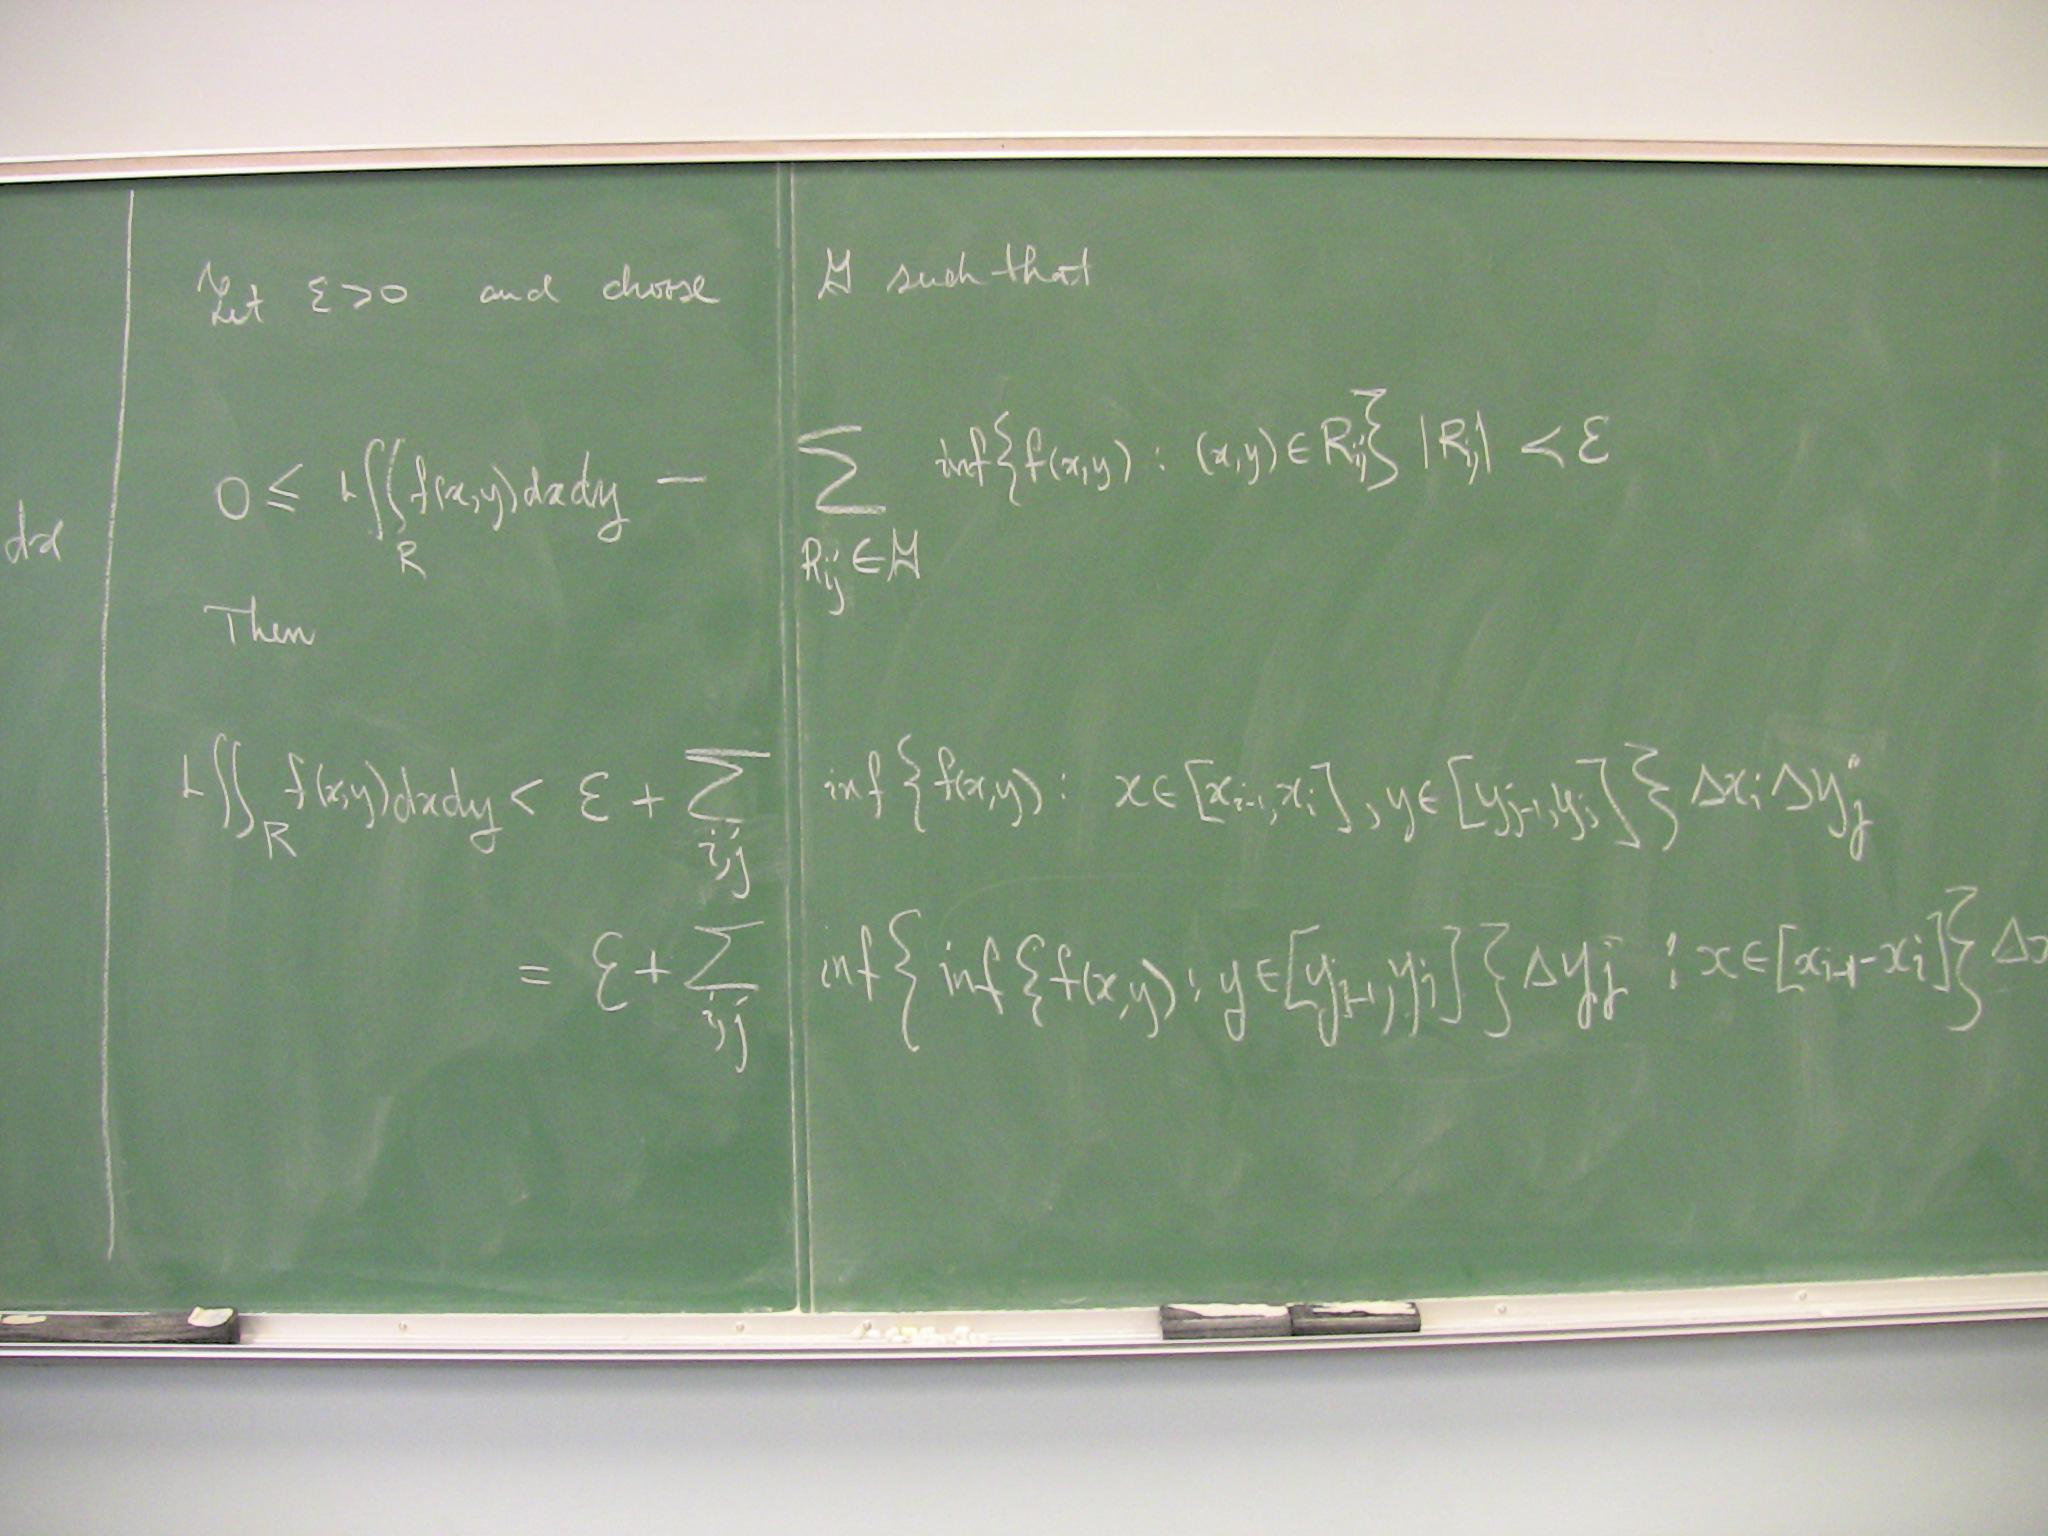 dx
Let ε>0 and choose 𝒢 such that
0 ≤ L∬_R f(x,y)dxdy − ∑_{R_ij ∈ 𝒢} inf{f(x,y) : (x,y) ∈ R_ij} |R_ij| < ε
Then
L∬_R f(x,y)dxdy < ε + ∑_{i,j} inf{f(x,y) : x∈[x_{i-1},x_i], y∈[y_{j-1},y_j]} Δx_i Δy_j
= ε + ∑_{i,j} inf{inf{f(x,y) : y∈[y_{j-1},y_j]} Δy_j : x∈[x_{i-1}-x_i]} Δx